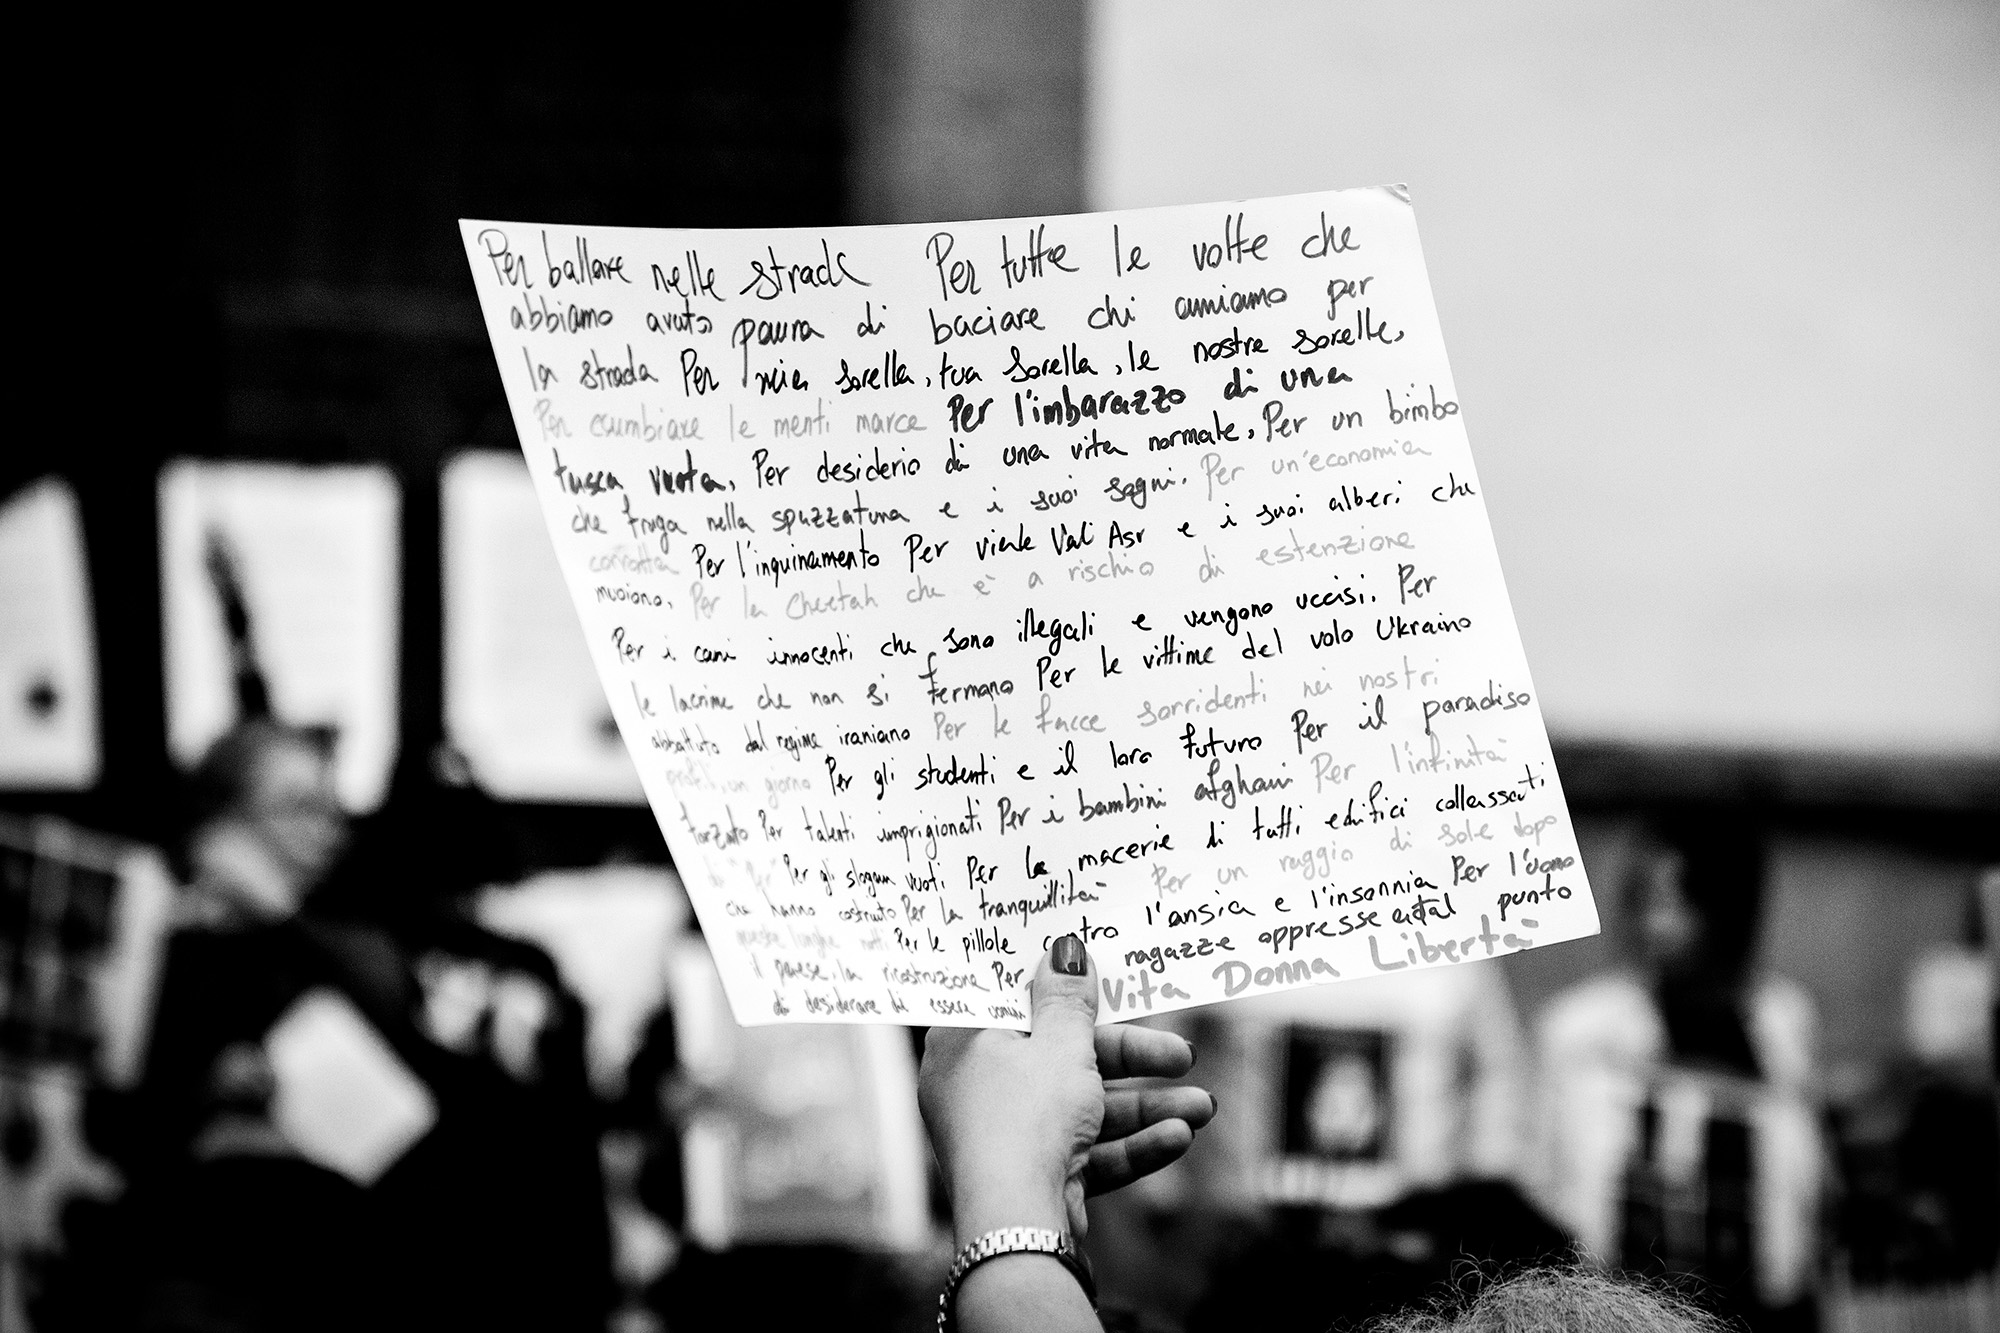 Per ballare nelle strade Per tutte le volte che
abbiamo avuto paura di baciare chi amiamo per
la strada Per mia sorella, tua sorella, le nostre sorelle,
Per cambiare le menti marce Per l'imbarazzo di una
tasca vuota, Per desiderio di una vita normale, Per un bimbo
che fruga nella spazzatura e i suoi sogni. Per un'economia
corrotta Per l'inquinamento Per viale Val Asr e i suoi alberi che
muoiono, Per la Cheetah che è a rischio di estenzione
Per i cani innocenti che sono illegali e vengono uccisi. Per
le lacrime che non si fermano Per le vittime del volo Ukraino
abbattuto dal regime iraniano Per le facce sorridenti nei nostri
un giorno Per gli studenti e il loro futuro Per il paradiso
forzato Per talenti imprigionati Per i bambini afghani Per l'infinità
di "Per" Per gli slogan vuoti Per le macerie di tutti edifici collassati
che hanno costruito Per la tranquillità Per un raggio di sole dopo
queste lunghe notti Per le pillole contro l'ansia e l'insonnia Per l'uomo
il paese, la ricostruzione Per ragazze oppresse dal punto
di desiderare di essere uomini Vita Donna Libertà